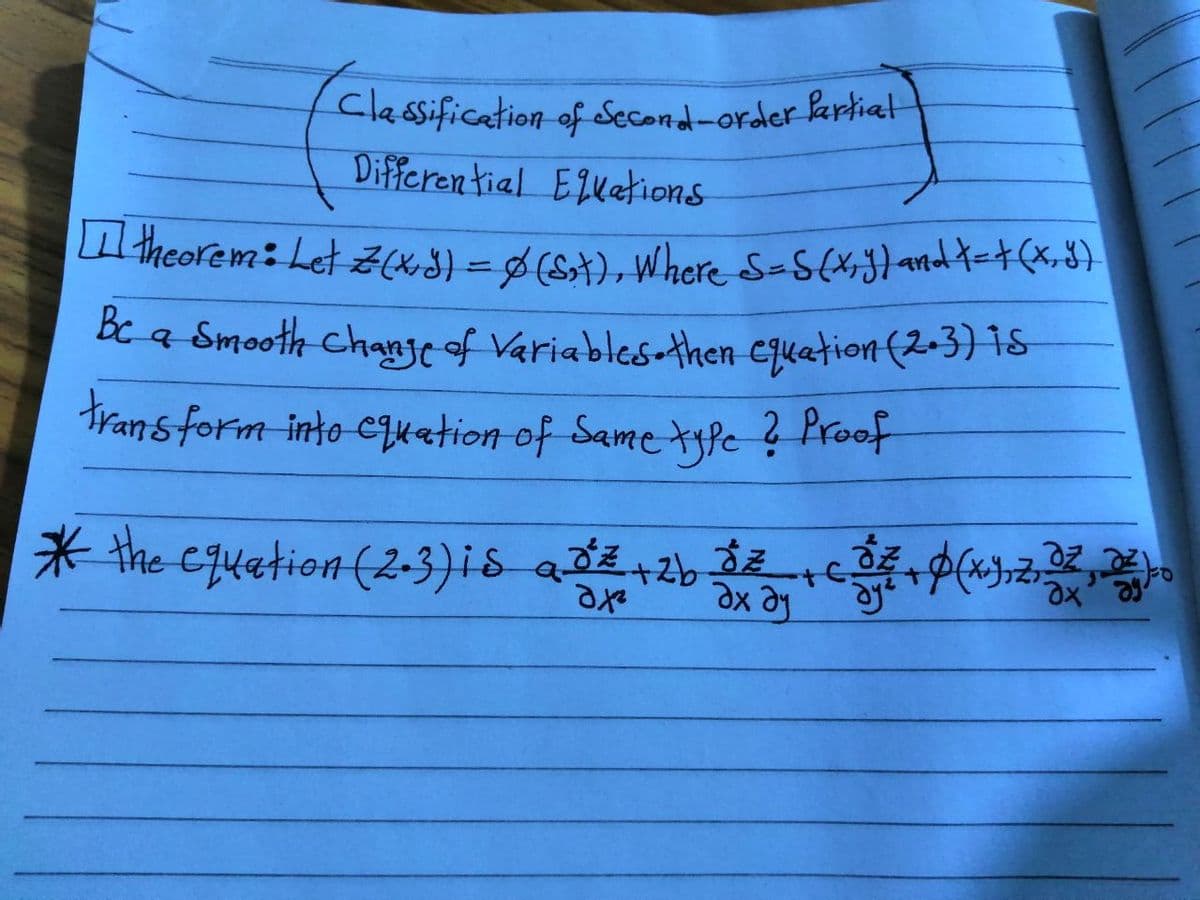 Classification of Second-order Partial
Differential Equations
1 theorem: Let Z(x,y) = φ(S,t), Where S=S(x,y) and t=t(x,y)
Be a Smooth change of Variables.then equation (2.3) is
transform into equation of Same type ? Proof
* the equation (2.3) is a ∂²z/∂x² + 2b ∂²z/∂x∂y + c ∂²z/∂y² + φ(x,y,z,∂z/∂x,∂z/∂y)=0